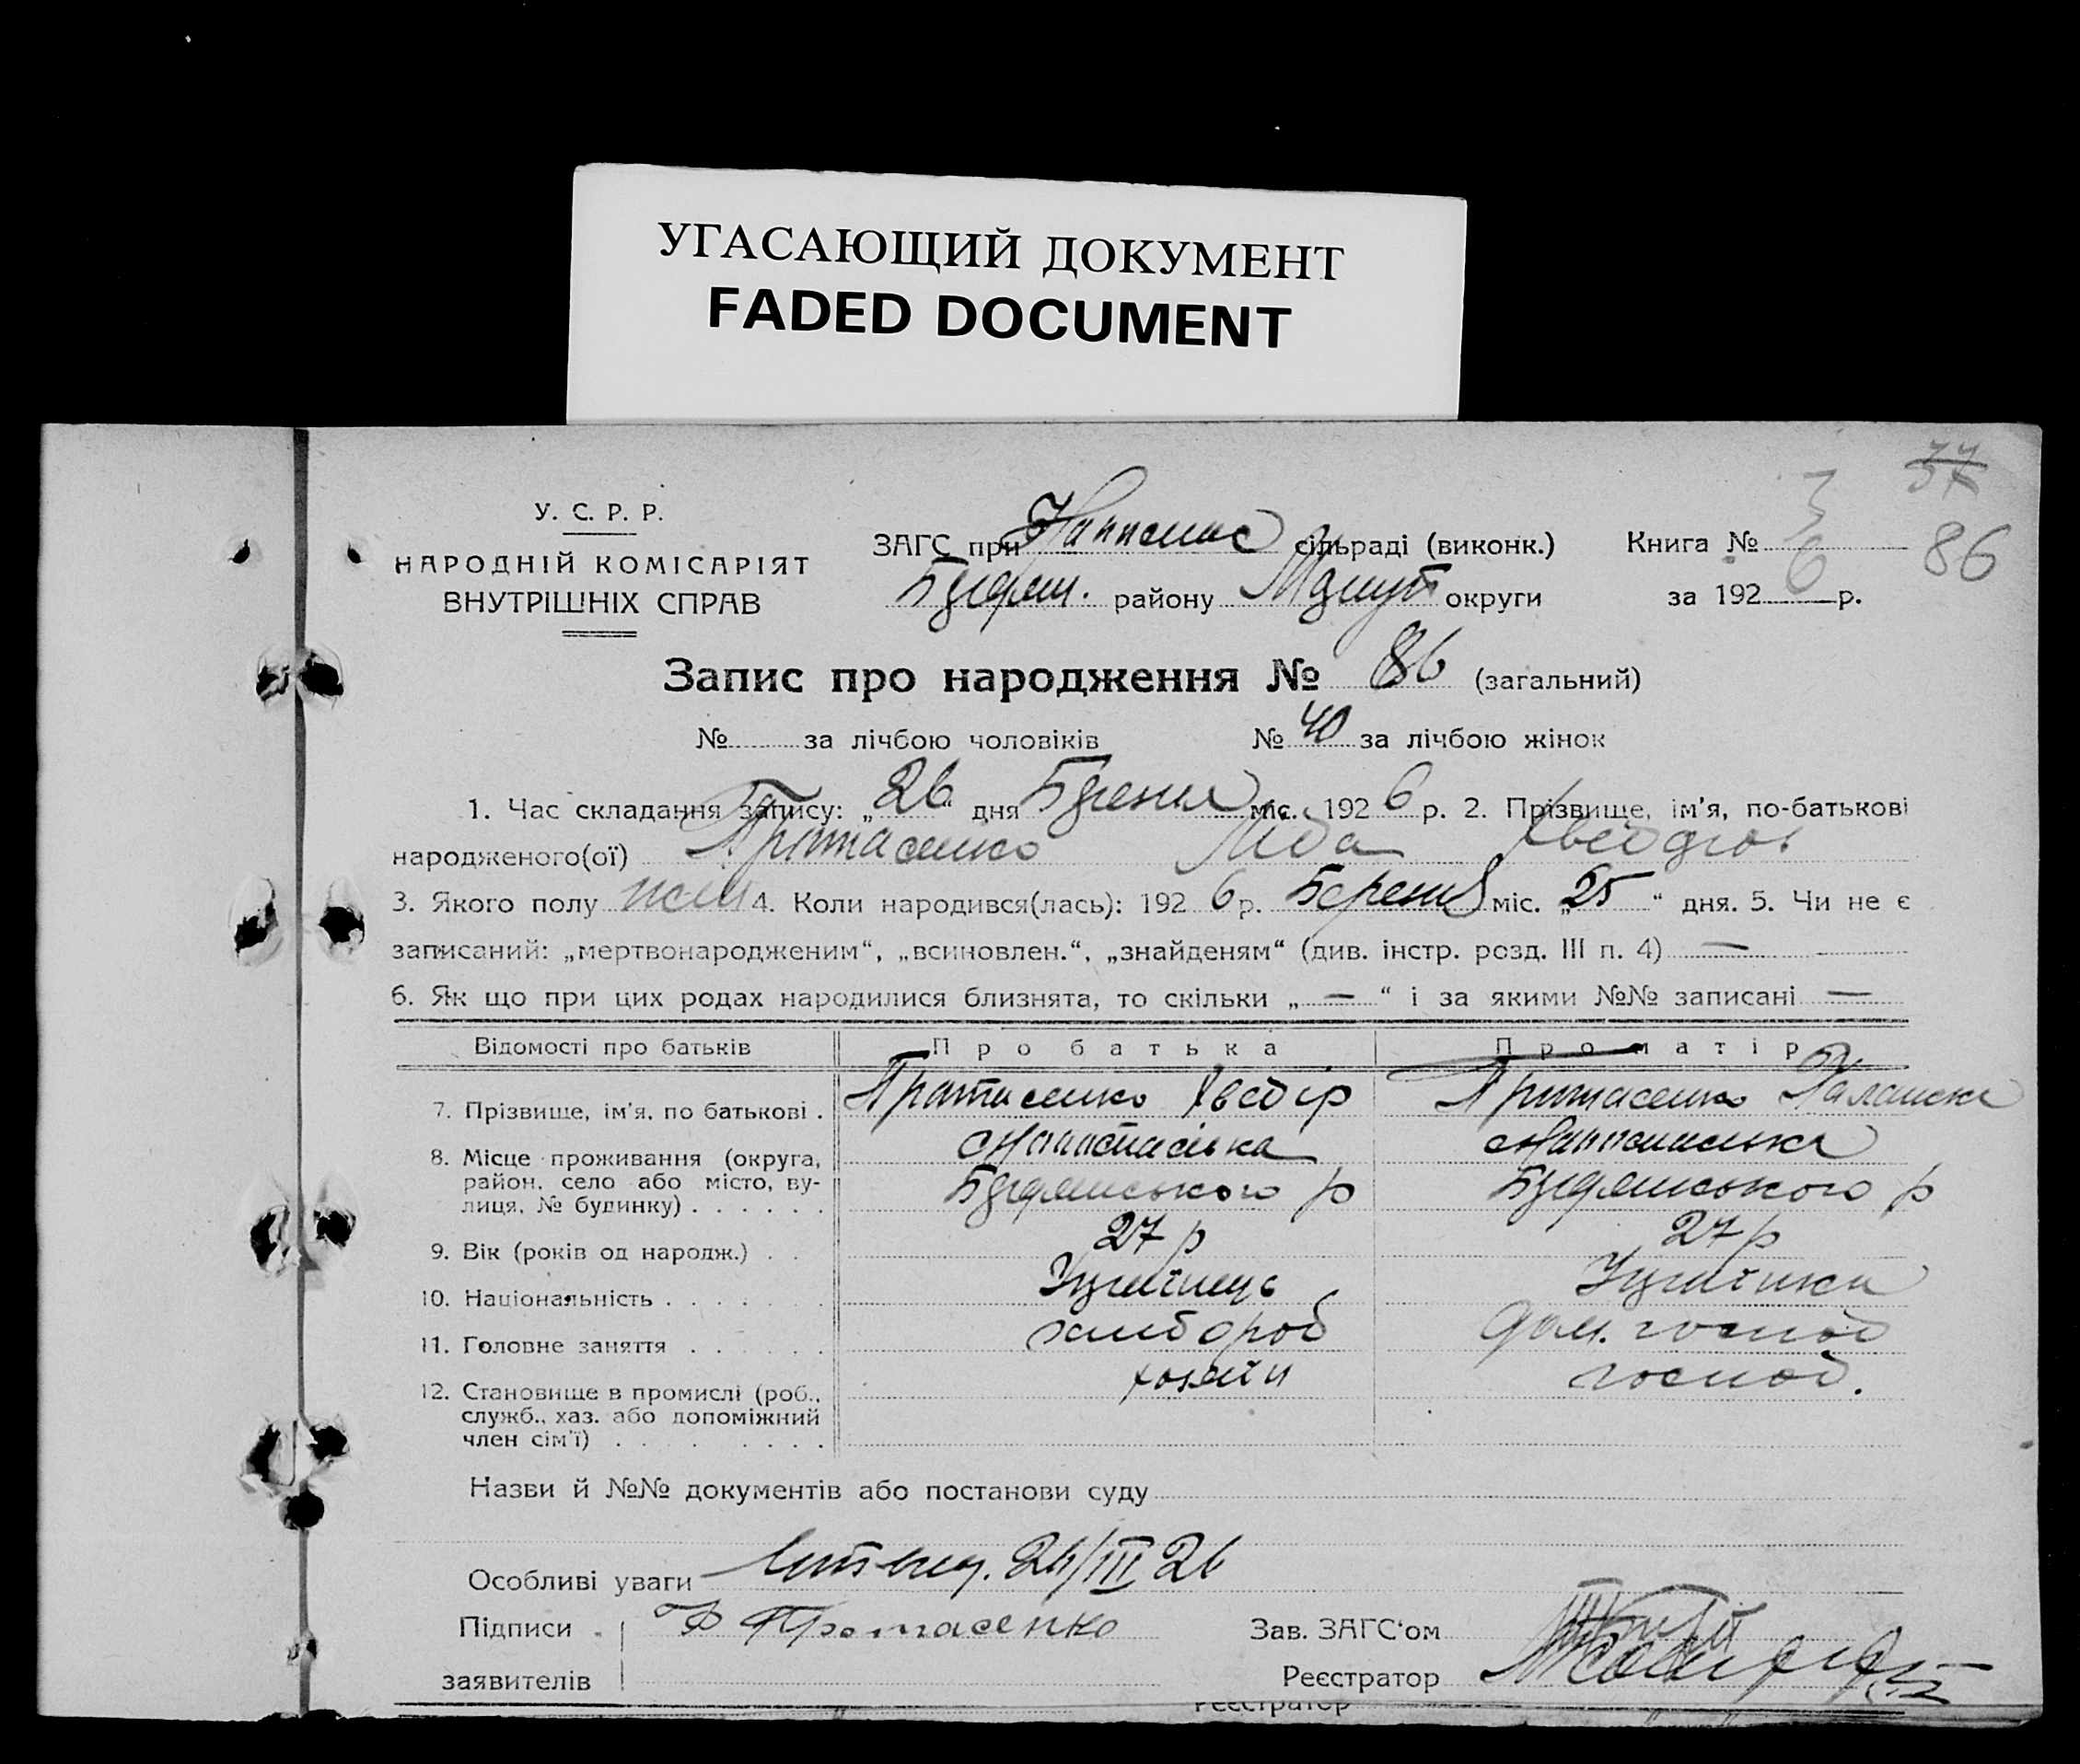 УГАСАЮЩИЙ ДОКУМЕНТ
FADED DOCUMENT
37
У. С. Р. Р.
НАРОДНІЙ КОМІСАРІЯТ
ВНУТРІШНІХ СПРАВ
ЗАГС при сільраді (виконк.)
району округи
Книга № 3
за 1926 р.
86
Запис про народження № 86 (загальний)
№ за лічбою чоловіків № 40 за лічбою жінок
1. Час складання запису: „26“ дня Березня міс. 1926 р. 2. Прізвище, ім'я, по-батькові
народженого(ої) Протасенко Ліда
3. Якого полу жін 4. Коли народився(лась): 1926 р. Березня міс. „25“ дня. 5. Чи не є
записаний: „мертвонародженим“, „всиновлен.“, „знайденям“ (див. інстр. розд. III п. 4) —
6. Як що при цих родах народилися близнята, то скільки „—“ і за якими №№ записані —
Відомості про батьків Про батька Про матір
7. Прізвище, ім'я, по батькові . Протасенко Хведір Протасенко
8. Місце проживання (округа,
район, село або місто, ву-
лиця, № будинку) . . . . . .
9. Вік (років од народж.) . . 27 р 27 р
10. Національність . . . . . . . Українець Українка
11. Головне заняття . . . . . . хлібороб дом. господ
12. Становище в промислі (роб., хазяїн господ.
служб., хаз. або допоміжний
член сім'ї) . . . . . . . .
Назви й №№ документів або постанови суду
Особливі уваги 26/III 26
Підписи Ф Протасенко
заявителів
Зав. ЗАГС'ом
Реєстратор
Реєстратор